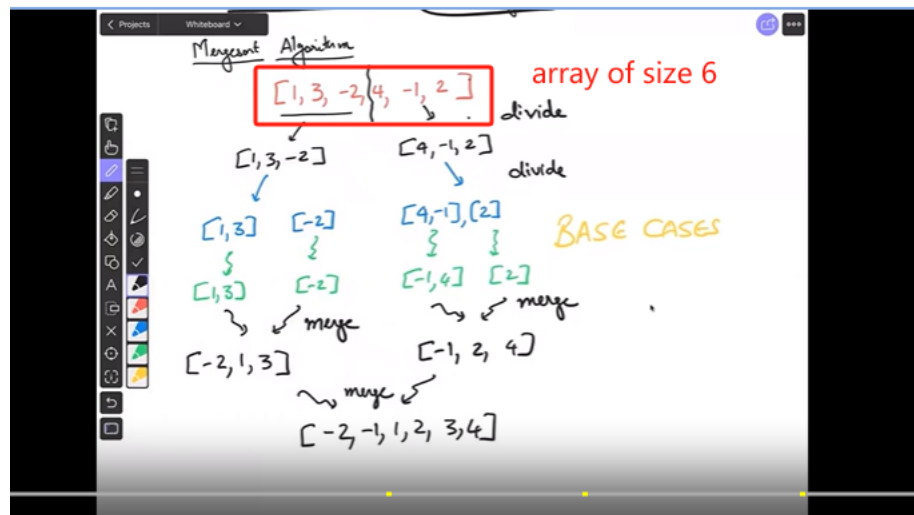 Projects Whiteboard
Mergesort Algorithm
[1, 3, -2, 4, -1, 2]
array of size 6
divide
[1, 3, -2] [4, -1, 2]
divide
[1, 3] [-2] [4, -1], [2]
BASE CASES
[1, 3] [-2] [-1, 4] [2]
merge merge
[-2, 1, 3] [-1, 2, 4]
merge
[-2, -1, 1, 2, 3, 4]
A